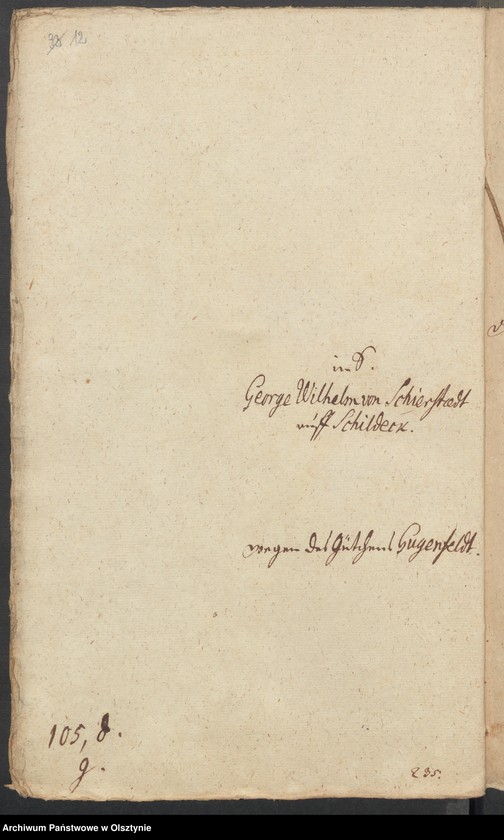 38 12
in S.
George Wilhelm von Schierstædt
auff Schildeck.
wegen des Gütchens Hugenfeldt.
105, 8.
g.
235.
Archiwum Państwowe w Olsztynie